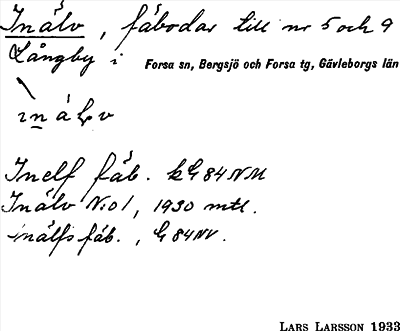 Inälv, fäbodar till nr 5 och 9
Långby i Forsa sn, Bergsjö och Forsa tg, Gävleborgs län
Inelf fäb. kG84NM
Inälv No1, 1930 mtl.
inälfs fäb., G84NV.
LARS LARSSON 1933